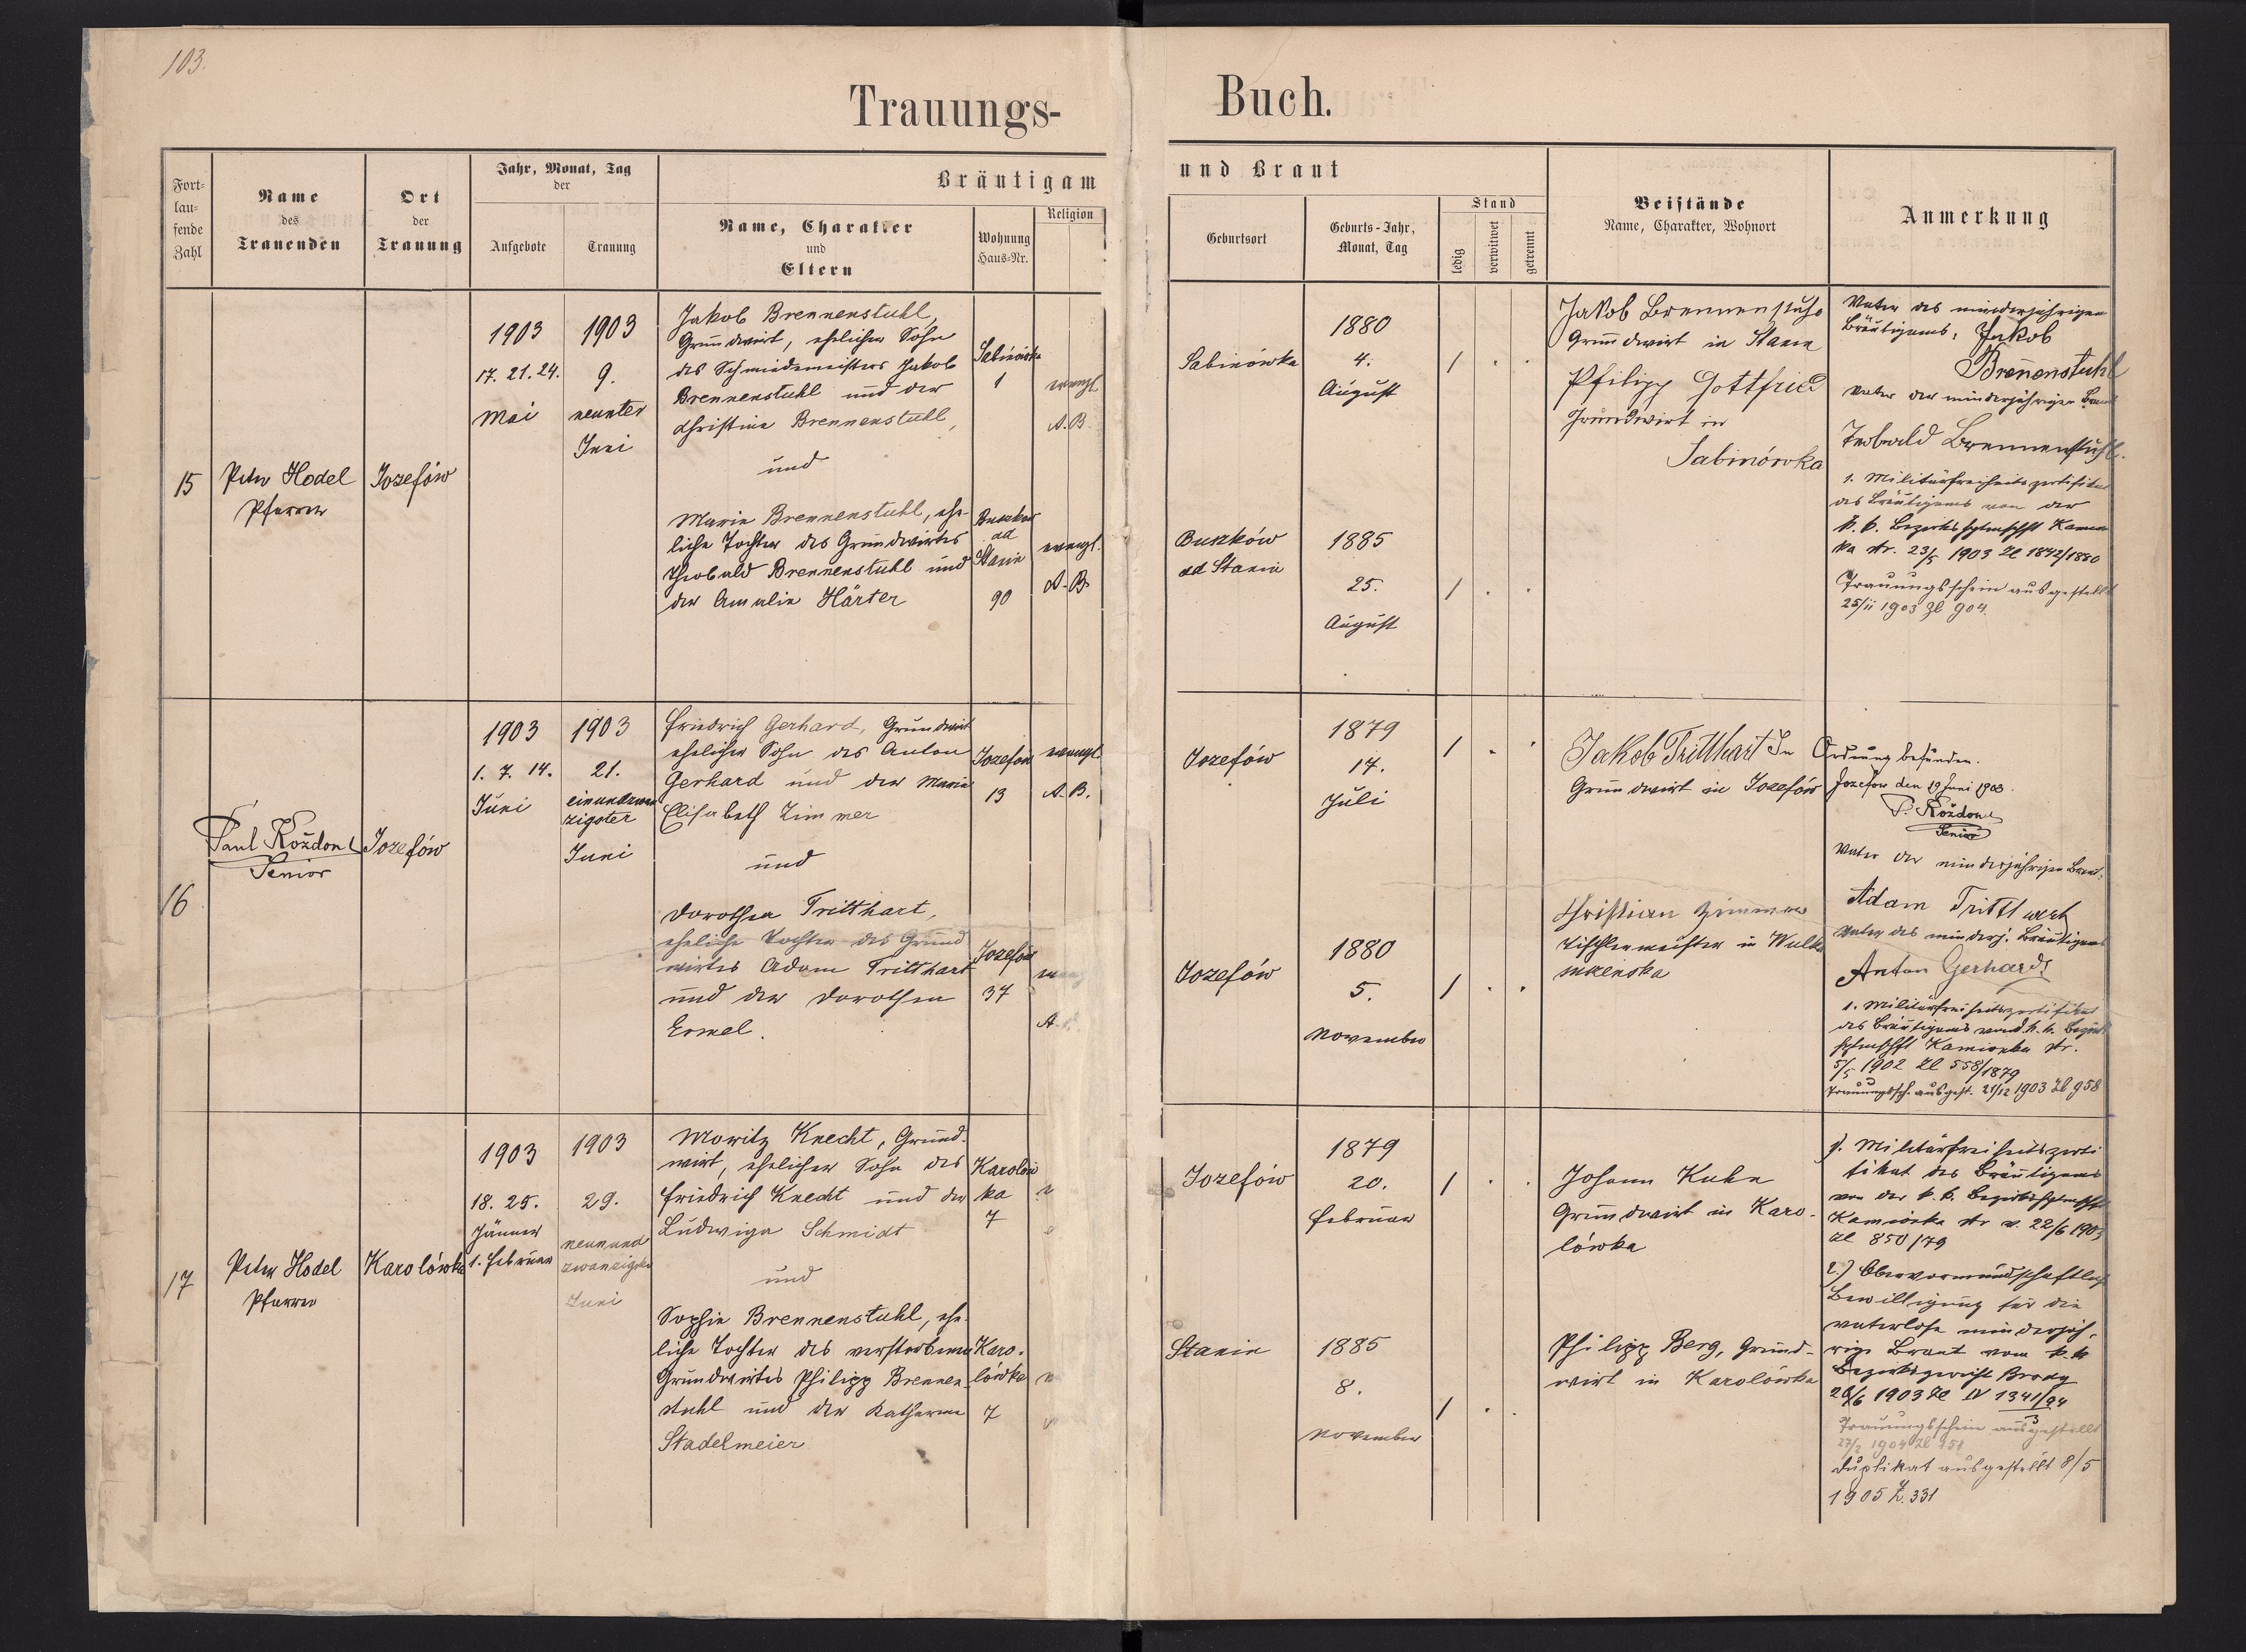 103.
Trauungs-
Buch.
Fort-
lau-
fende
Zahl
Name
des
Trauenden
Ort
der
Trauung
Jahr, Monat, Tag
der
Aufgebote
Trauung
Bräutigam
Name, Charakter
und
Eltern
Wohnung
Haus-Nr.
Religion
und Braut
Geburtsort
Geburts-Jahr,
Monat, Tag
Stand
ledig
verwitwet
getrennt
Beistände
Name, Charakter, Wohnort
Anmerkung
15
Peter Hodel
Pfarrer
Jozefów
1903
17. 21. 24.
Mai
1903
9.
neunter
Juni
Jakob Brennenstuhl,
Grundwirt, ehelicher Sohn
des Schmiedemeisters Jakob
Brennenstuhl und der
Christine Brennenstuhl,
und
Marie Brennenstuhl, ehe-
liche Tochter des Grundwirtes
Theobald Brennenstuhl und
der Amalie Härter
Sabinówka
1
Buszków
ad
Stanin
90
evangl.
A.B.
evangl.
A.B.
Sabinówka
1880
4.
August
1 . .
Buszków
ad Stanin
1885
25.
August
1 . .
Jakob Brennenstuhl
Grundwirt in Stanin
Philipp Gottfried
Grundwirt in
Sabinówka
Vater des minderjährigen
Bräutigams: Jakob
Brennenstuhl
Vater der minderjährigen Braut
Teobald Brennenstuhl.
1. Militärfreiheitszertifikat
des Bräutigams von der
k. k. Bezirkshptmschft Kamion
ka str. 23/5 1903 Zl 1842/1880
Trauungsschein ausgestellt
25/11 1903 Zl 904.
16
Paul Rożdon
Senior
Jozefów
1903
1. 7. 14.
Juni
1903
21.
einundzwan
zigster
Juni
Friedrich Gerhard, Grundwirt
ehelicher Sohn des Anton
Gerhard und der Maria
Elisabeth Zimmer
und
Dorothea Tritthart,
eheliche Tochter des Grund
wirtes Adam Tritthart
und der Dorothea
Ermel.
Jozefów
13
Jozefów
37
evangl.
A.B.
A.
Jozefów
1879
14.
Juli
1 . .
Jozefów
1880
5.
November
1 . .
Jakob Tritthart
Grundwirt in Jozefów
Christian Zimmer
Tischlermeister in Wulka
In Ordnung befunden.
Jozefow den 19 Juni 1903.
P. Rożdon
Senior
Vater der minderjährigen Braut:
Adam
Vater des minderj. Bräutigams
Anton Gerhard
1. Militärfreiheitszertifikat
des Bräutigams von d. k. k. Bezirks
hptmschft Kamionka str.
5/5 1902 Zl 558/1879
Trauungssch. ausgest. 21/12 1903 Zl 958
17
Peter Hodel
Pfarrer
Karolówka
1903
18. 25.
Jänner
1. Februar
1903
29.
neunund
zwanzigster
Juni
Moritz Knecht, Grund-
wirt, ehelicher Sohn des
Friedrich Knecht und der
Ludwiga Schmidt
und
Sophie Brennenstuhl, ehe-
liche Tochter des verstorbenen
Grundwirtes Philipp Brennen-
stuhl und der Katharina
Stadelmeier
Karolów
ka
7
Karo-
lówka
7
Jozefów
1879
20.
Februar
1 . .
Stanin
1885
8.
November
1 . .
Johann Kuhn
Grundwirt in Karo-
lówka
Philipp Berg, Grund-
wirt in Karolówka
1. Militärfreiheitszerti
fikat des Bräutigams
von der k. k. Bezirkshptmschft
Kamionka str v. 22/6 1903
Zl 850/79
2.) Obervormundschaftliche
Bewilligung für die
vaterlose minderjäh-
rige Braut vom k. k.
Bezirksgericht Brody
26/6 1903 Zl IV 1341/94
3
Trauungsschein ausgestellt
27/2 1904 Zl 151
Duplikat ausgestellt 8/5
1905 Z. 331